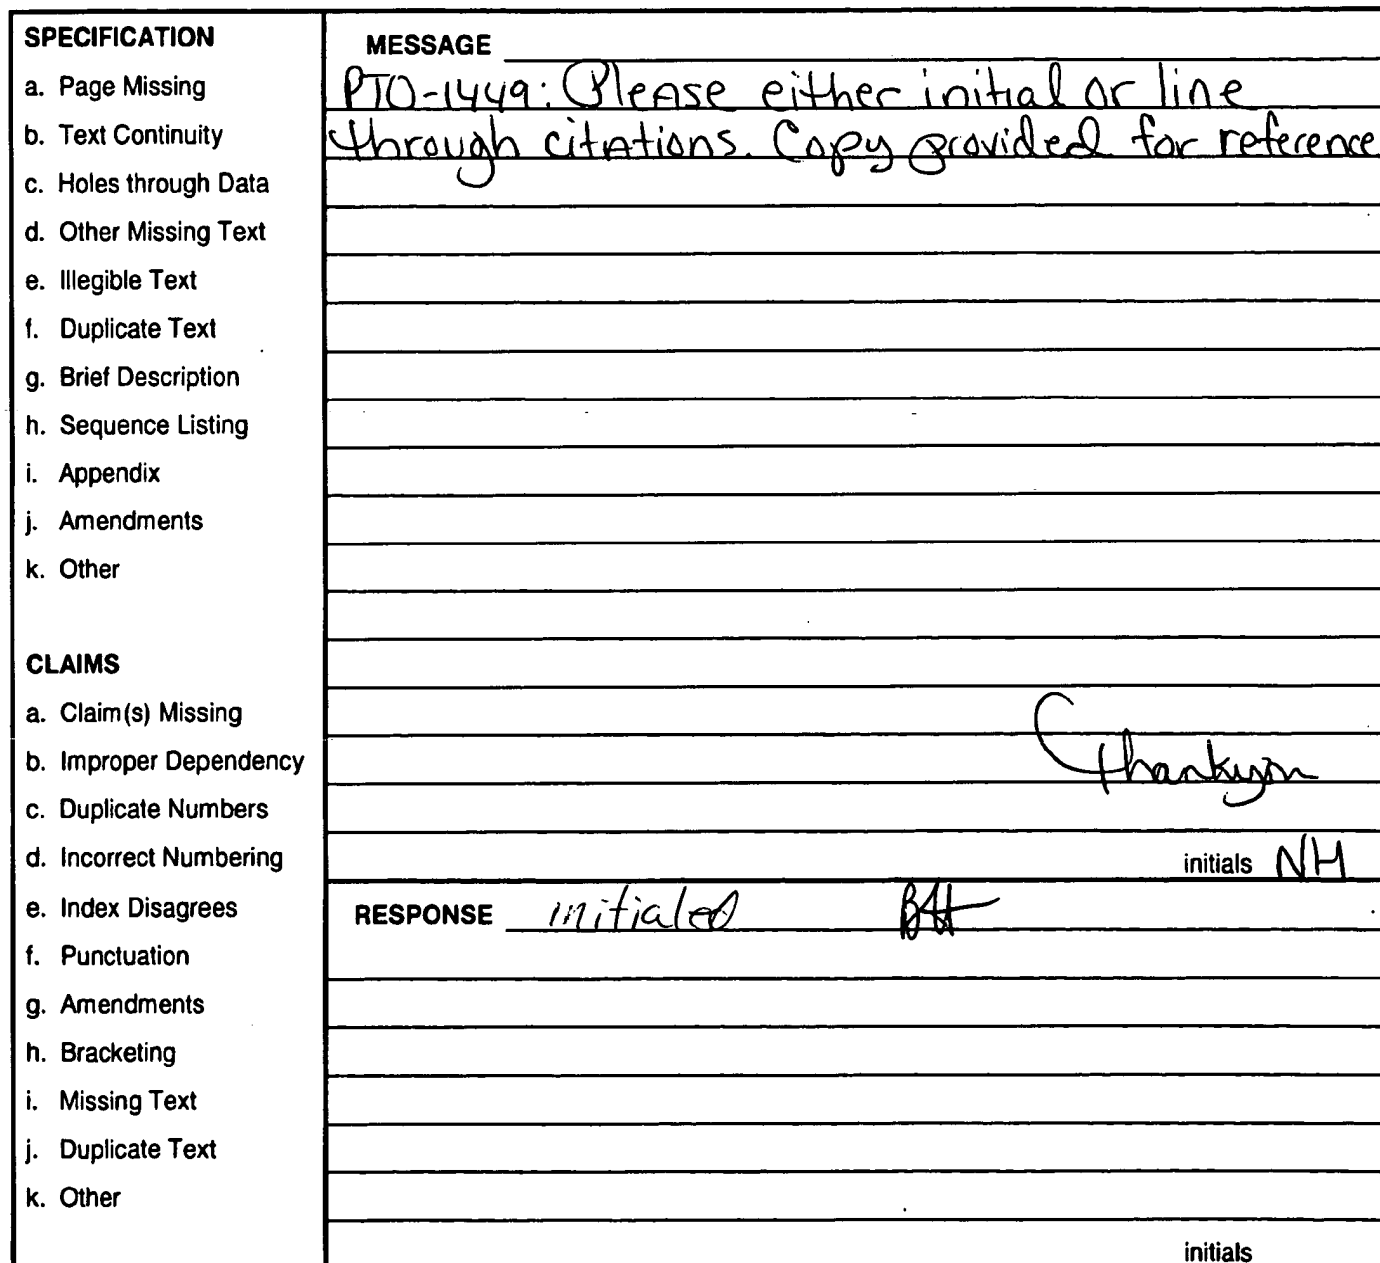 SPECIFICATION
a. Page Missing
b. Text Continuity
c. Holes through Data
d. Other Missing Text
e. Illegible Text
f. Duplicate Text
g. Brief Description
h. Sequence Listing
i. Appendix
j. Amendments
k. Other
CLAIMS
a. Claim(s) Missing
b. Improper Dependency
c. Duplicate Numbers
d. Incorrect Numbering
e. Index Disagrees
f. Punctuation
g. Amendments
h. Bracketing
i. Missing Text
j. Duplicate Text
k. Other
MESSAGE
PTO-1449: Please either initial or line
through citations. Copy provided for reference
Thank you
initials NH
RESPONSE initialed
initials